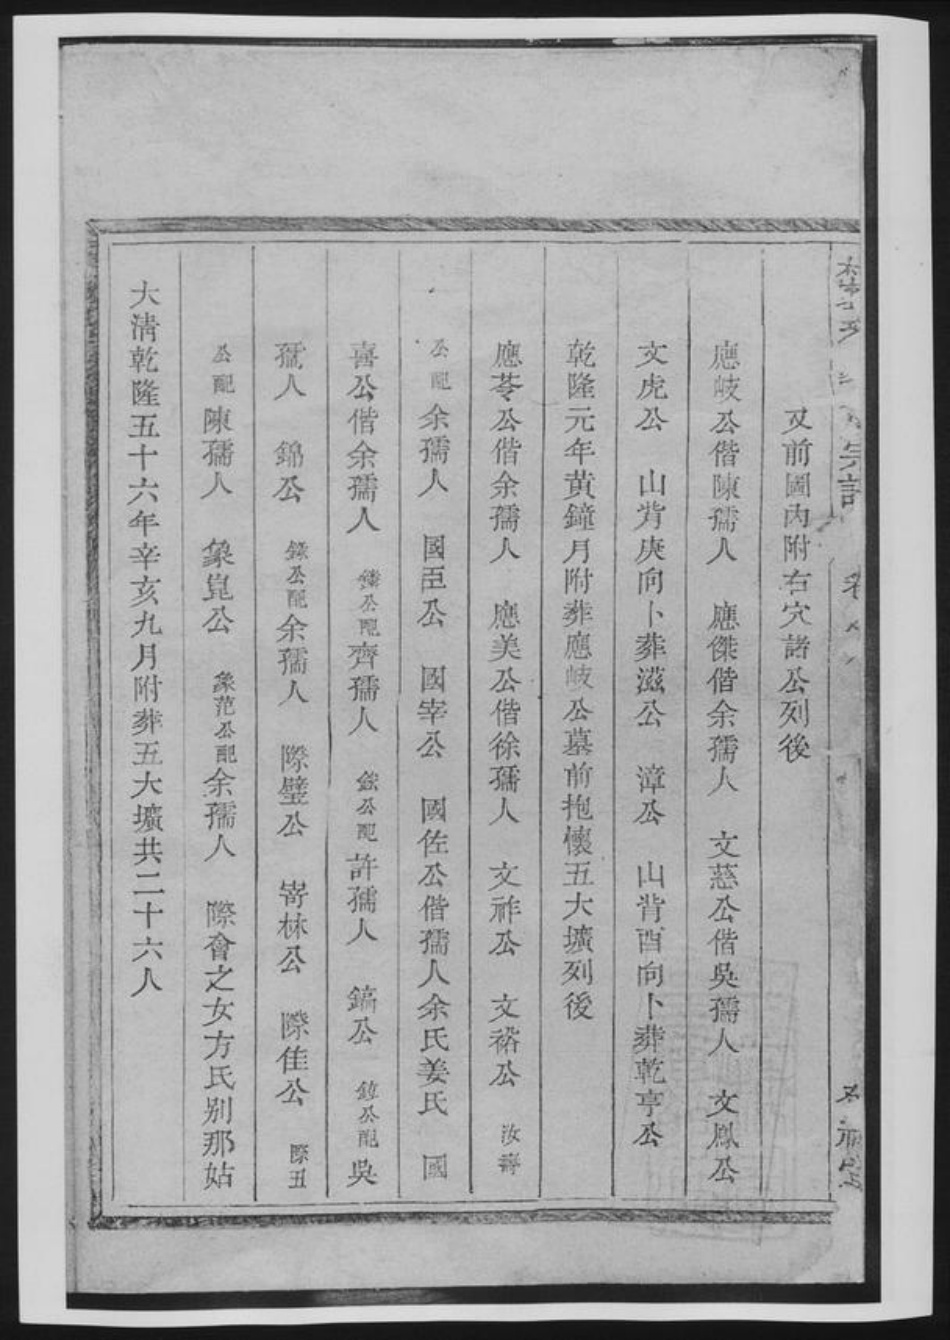 宗譜
又前圖內附右穴諸公列後
應岐公偕陳孺人 應傑偕余孺人 文慈公偕吳孺人 文鳳公
文虎公 山背庚向卜葬滋公 漳公 山背酉向卜葬乾亨公
乾隆元年黃鐘月附葬應岐公墓前抱懷五大壙列後
應苓公偕余孺人 應美公偕徐孺人 文祚公 文裕公 汝壽
公配余孺人 國臣公 國宰公 國佐公偕孺人余氏姜氏 國
喜公偕余孺人 公配齊孺人 公配許孺人 鎬公 公配吳
孺人 錦公 錄公配余孺人 際璧公 嵜林公 際佳公 際丑
公配陳孺人 象崑公 象范公配余孺人 際會之女方氏别那姑
大淸乾隆五十六年辛亥九月附葬五大壙共二十六人